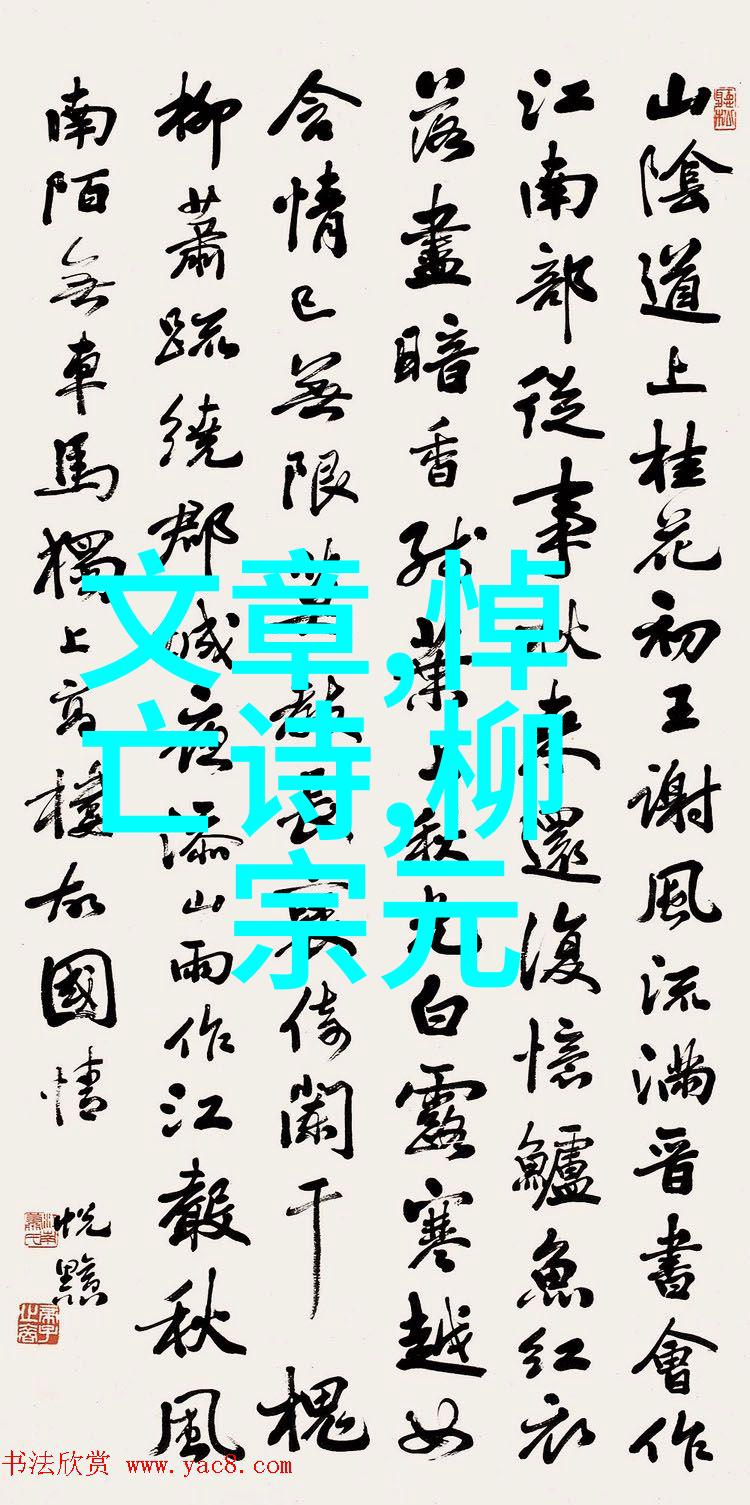 山陰道上桂花初王謝風流滿晉書會作
江南部從事秋來還復憶鱸魚紅衣
落盡暗香殘葉上秋光白露寒越女
含情已無限莫教長袖倚闌干 槐
柳蕭疏繞郡城夜添山雨作江聲秋風
南陌無車馬獨上高樓故國情
文章,悼
亡诗,柳
宗元
书法欣赏 www.yac8.com